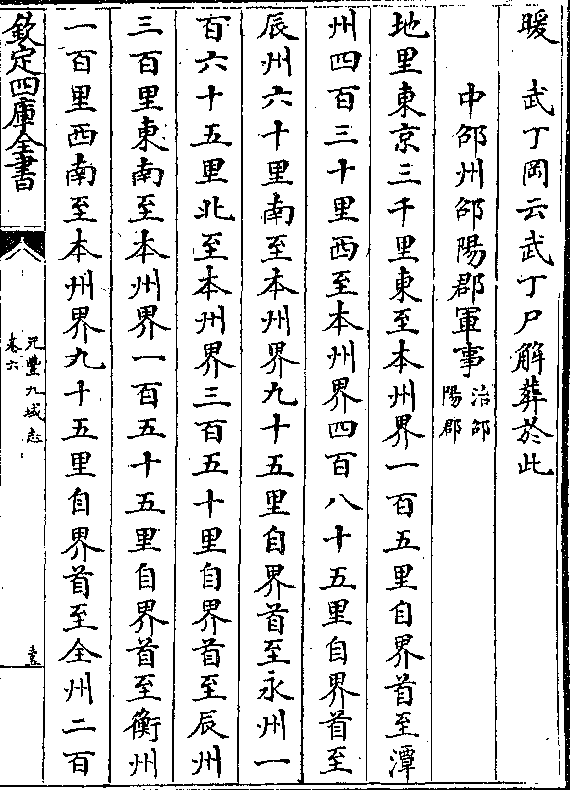 暖　武丁岡云武丁尸解葬於此
中邵州邵陽郡軍事
治邵
陽郡
地里東京三千里東至本州界一百五里自界首至潭
州四百三十里西至本州界四百八十五里自界首至
辰州六十里南至本州界九十五里自界首至永州一
百六十五里北至本州界三百五十里自界首至辰州
三百里東南至本州界一百五十五里自界首至衡州
一百里西南至本州界九十五里自界首至全州二百
欽定四庫全書
元豐九域志
卷六